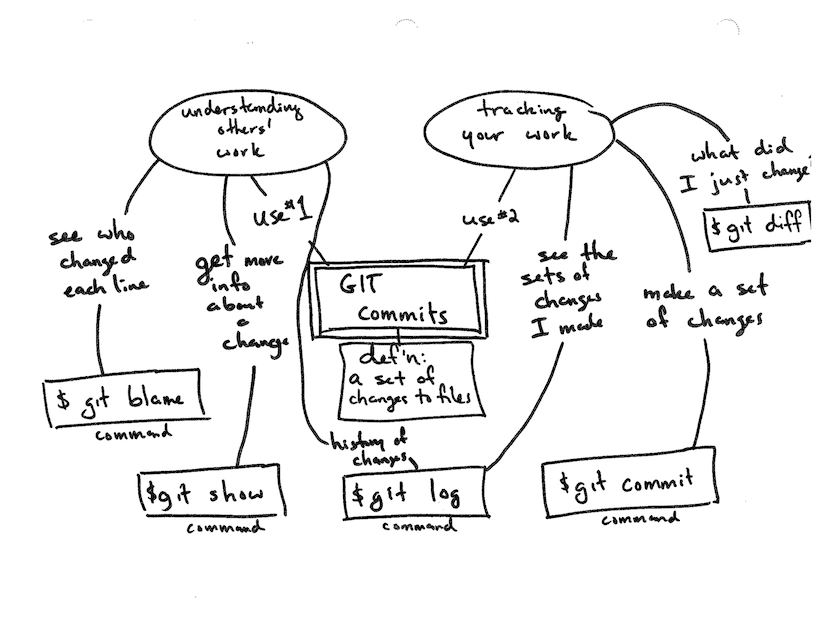 understanding
others'
work
tracking
your work
what did
I just change
$ git diff
use #1
use #2
see who
changed
each line
get more
info
about
a
change
GIT
Commits
see the
sets of
changes
I made
make a set
of changes
def'n:
a set of
changes to files
$ git blame
command
history of
changes
$ git show
command
$ git log
command
$ git commit
command